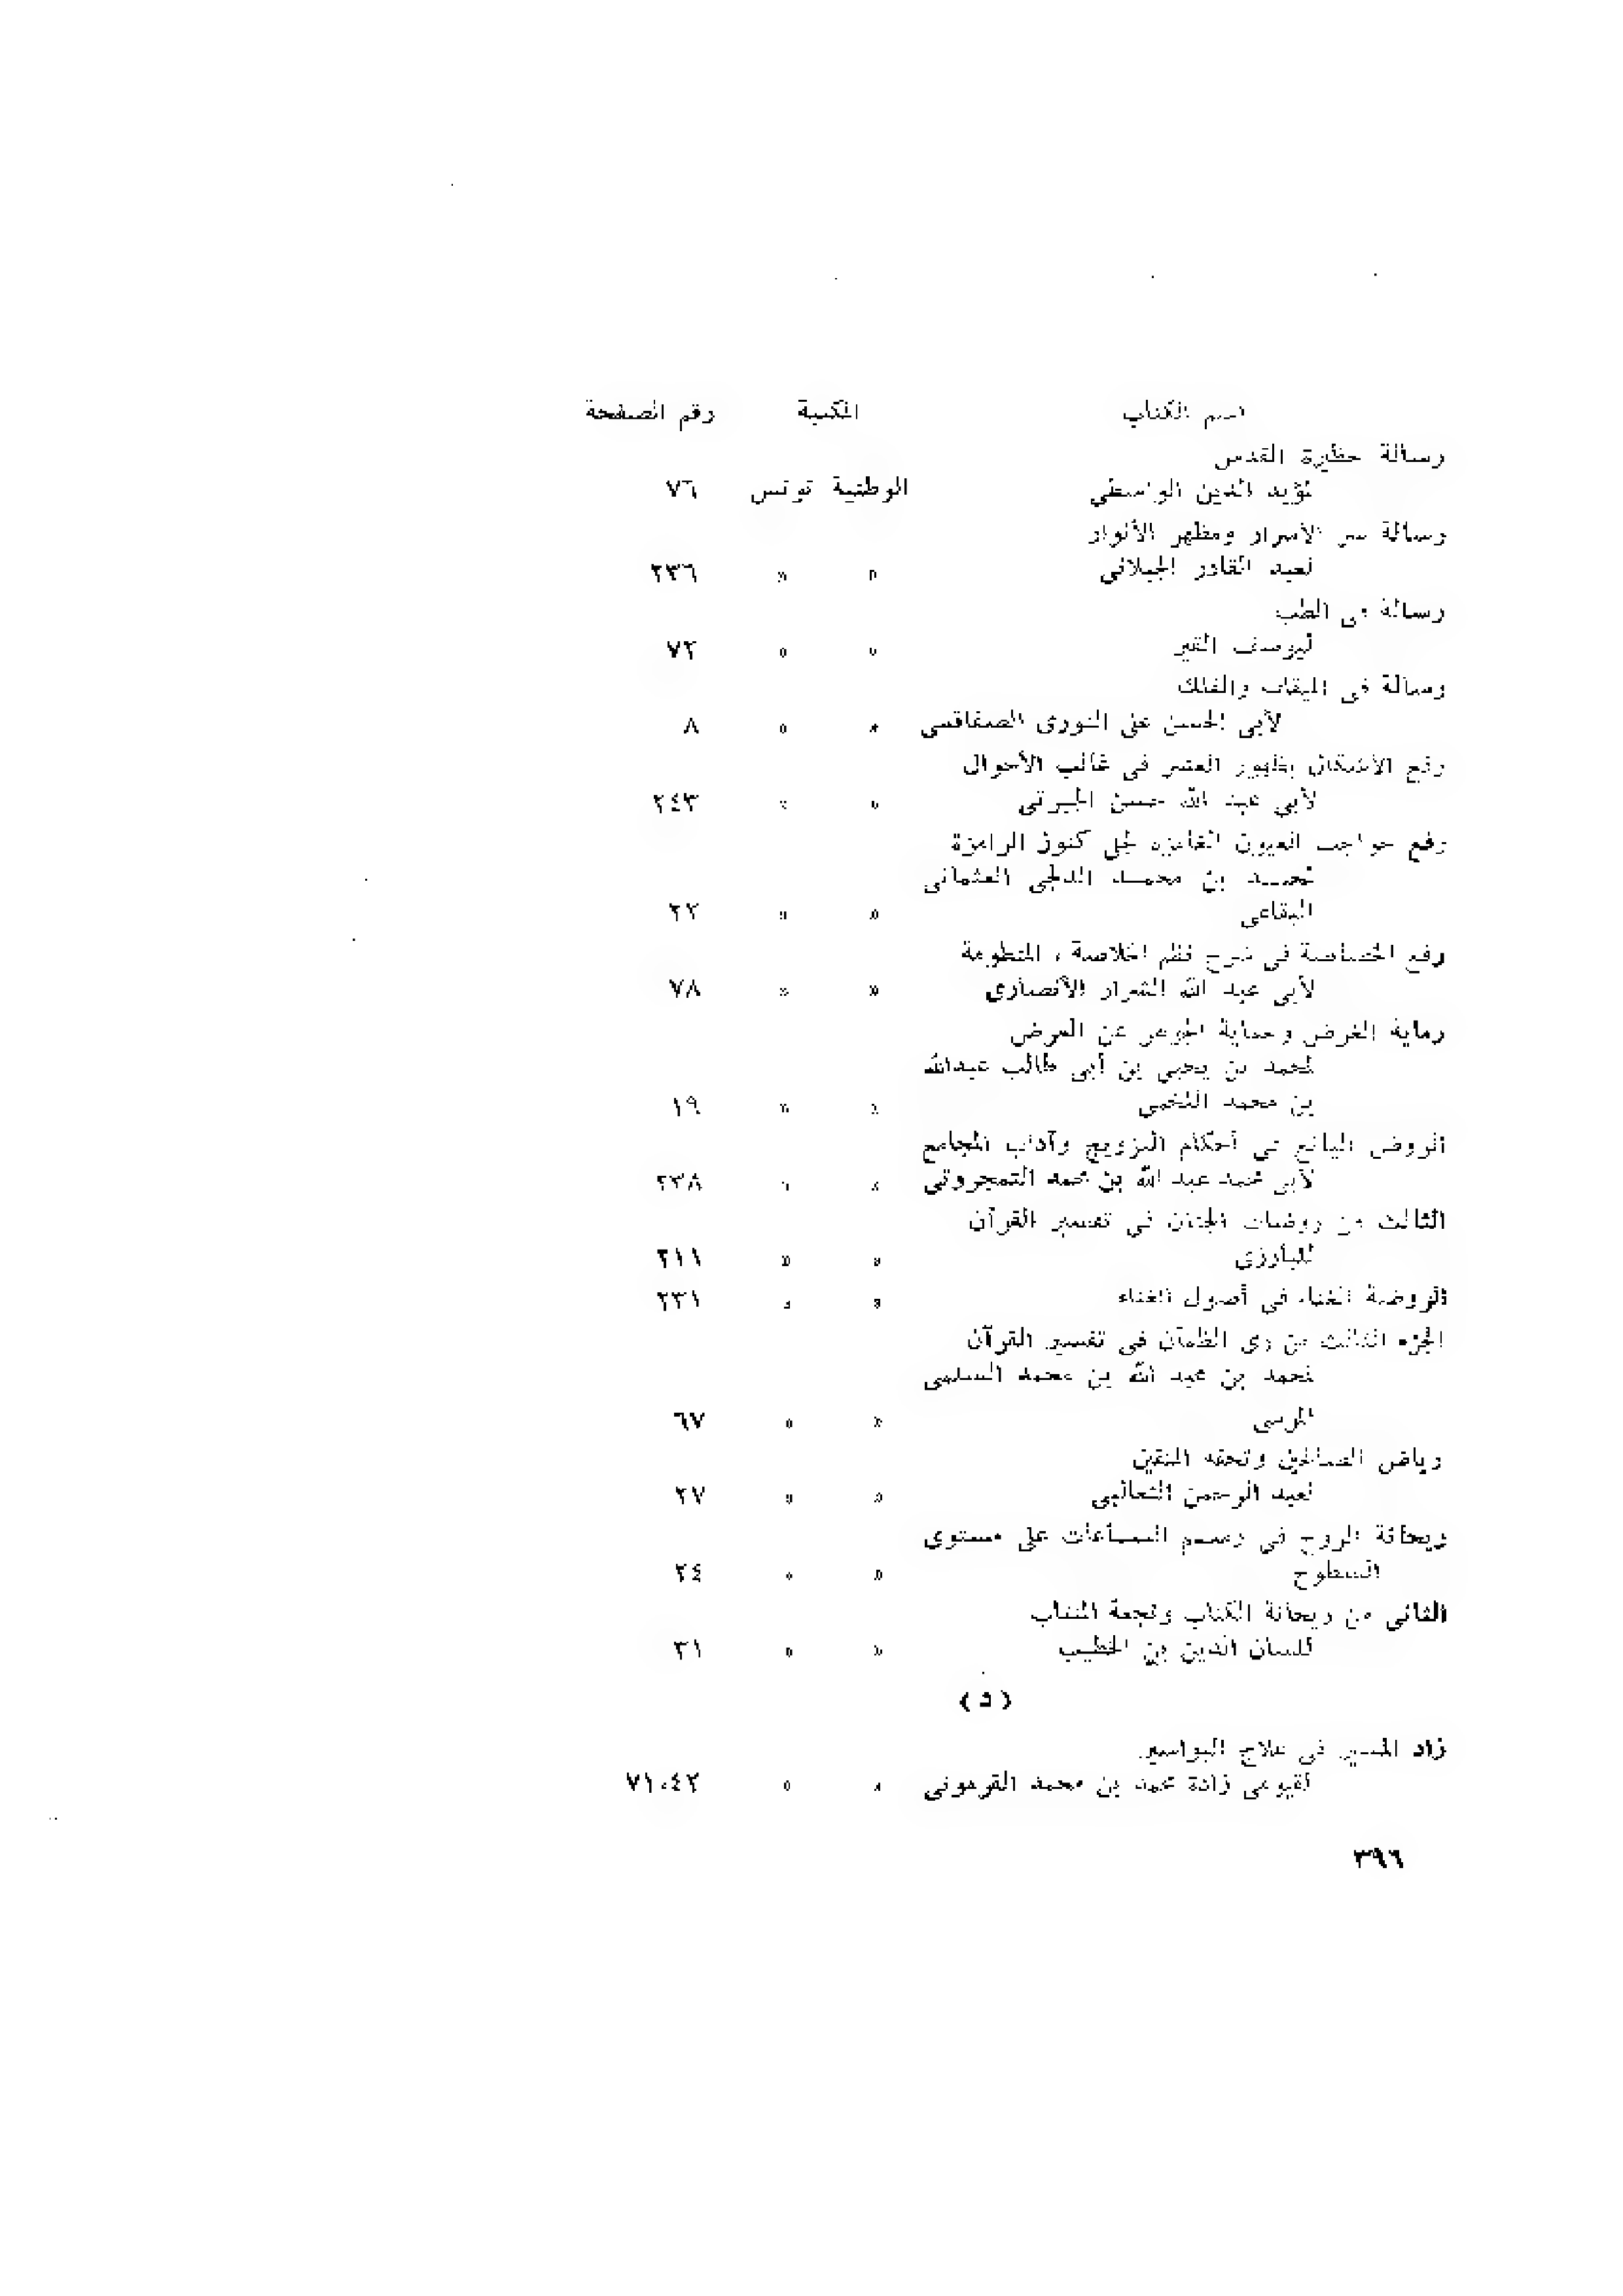 اسم الكتاب المكتبة رقم الصفحة
رسالة حظيرة القدس
لمؤيد الدين الواسطي الوطنية تونس ٧٦
رسالة سر الأسرار ومظهر الأنوار
لعبد القادر الجيلاني » » ٢٣٦
رسالة في الطب
ليوسف » » ٧٢
رسالة في الميقات والفلك
لأبى الحسن على النورى الصفاقسى » » ٨
رفع الأشكال بظهور العشر في غالب الأحوال
لأبي عبد الله حسن الجبرتى » » ٢٤٣
رفع حواجب العيون الغامزة لحل كنوز الرامزة
لمحمد بن محمد الدلجى العثمانى
البقاعى » » ٢٢
رفع الخصاصة في شرح نظم الخلاصة ، المنظومة
لأبى عبد الله الأنصارى » » ٧٨
رماية الغرض وحماية الجوهر عن العرض
لمحمد بن يحيى بن أبى طالب عبدالله
بن محمد اللخمى » » ١٩
الروض اليانع في أحكام التزويج وآداب المجامع
لأبى محمد عبد الله بن محمد التمجروتى » » ٢٣٨
الثالث من روضات الجنان في تفسير القرآن
للبارزى » » ٢١١
الروضة الغناء في أصول الغناء » » ٢٣١
الجزء الثالث من رى الظمآن في تفسير القرآن
لمحمد بن عبد الله بن محمد السلمى
المرسى » » ٦٧
رياض الصالحين وتحفة المتقين
لعبد الرحمن الثعالبى » » ٢٧
ريحانة الروح في رسم الساعات على مستوى
السطوح » » ٢٤
الثانى من ريحانة الكتاب ونجعة المنتاب
للسان الدين بن الخطيب » » ٣١
زاد المسير في علاج البواسير
لقيومى زادة محمد بن محمد القوصونى » » ٧١،٤٢
٣٩٦